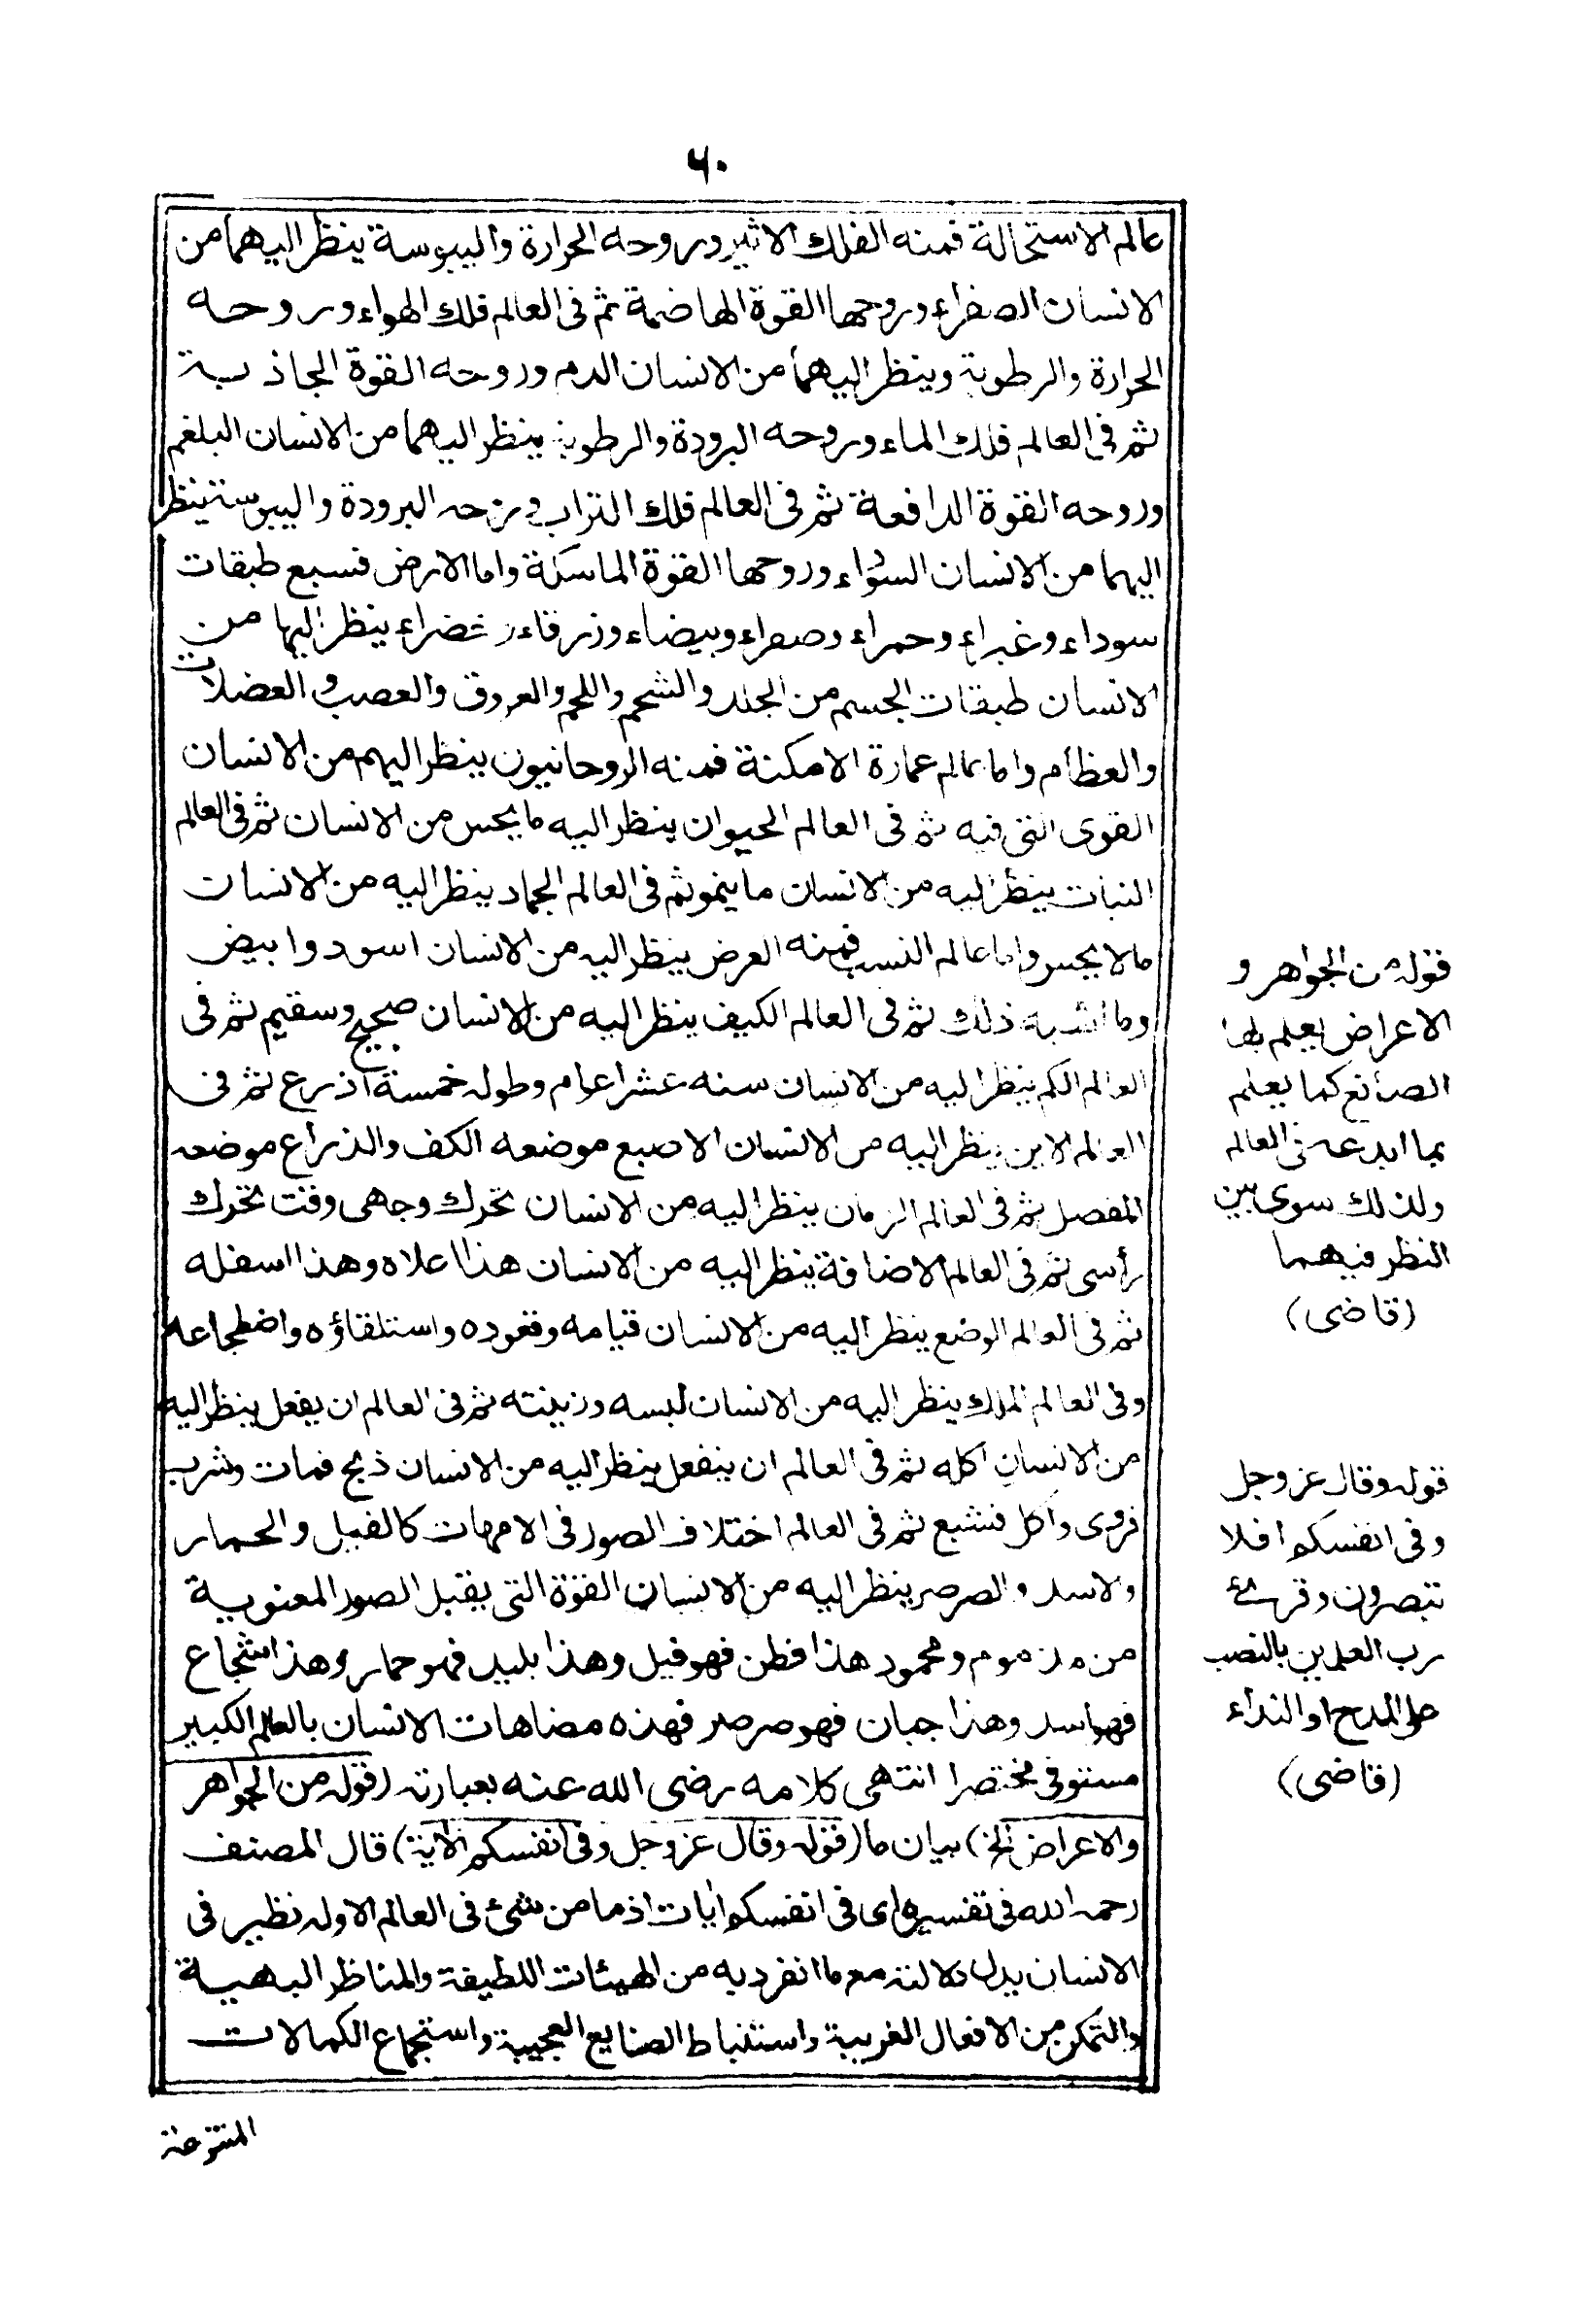 ٦٠
عالم الاستحالة فمنه الفلك الاثير وروحه الحرارة واليبوسة ينظر اليهما من
الانسان الصفراء وروحها القوة الهاضمة ثم فى العالم فلك الهواء وروحه
الحرارة والرطوبة وينظر اليهما من الانسان الدم وروحه القوة الجاذبة
ثم فى العالم فلك الماء وروحه البرودة والرطوبة ينظر اليهما من الانسان البلغم
وروحه القوة الدافعة ثم فى العالم فلك التراب وروحه البرودة واليبوسة ينظر
اليهما من الانسان السوداء وروحها القوة الماسكة واما الارض فسبع طبقات
سوداء وغبراء وحمراء وصفراء وبيضاء وزرقاء وخضراء ينظر اليها من
الانسان طبقات الجسم من الجلد والشحم واللحم والعروق والعصب والعضلات
والعظام واما عالم عمارة الامكنة فمنه الروحانيون ينظر اليهم من الانسان
القوى التى فيه ثم فى العالم الحيوان ينظر اليه ما يحس من الانسان ثم فى العالم
النبات ينظر اليه من الانسان ما ينمو ثم فى العالم الجماد ينظر اليه من الانسان
مالا يحس واما عالم النسب فمنه العرض ينظر اليه من الانسان اسود وابيض
وما اشبه ذلك ثم فى العالم الكيف ينظر اليه من الانسان صحيح وسقيم ثم فى
العالم الكم ينظر اليه من الانسان سنه عشر اعوام وطوله خمسة اذرع ثم فى
العالم الاين ينظر اليه من الانسان الاصبع موضعه الكف والذراع موضعه
المفصل ثم فى العالم الزمان ينظر اليه من الانسان تحرك وجهى وقت تحرك
رأسى ثم فى العالم الاضافة ينظر اليه من الانسان هذا اعلاه وهذا اسفله
ثم فى العالم الوضع ينظر اليه من الانسان قيامه وقعوده واستلقاؤه واضطجاعه
وفى العالم الملك ينظر اليه من الانسان لبسه وزينته ثم فى العالم ان يفعل ينظر اليه
من الانسان اكله ثم فى العالم ان ينفعل ينظر اليه من الانسان ذبح فمات وشرب
فروى واكل فشبع ثم فى العالم اختلاف الصور فى الامهات كالفيل والحمار
والاسد والصرصر ينظر اليه من الانسان القوة التى يقبل الصور المعنوية
من مذموم ومحمود هذا فطن فهو فيل وهذا بليد فهو حمار وهذا شجاع
فهو اسد وهذا جبان فهو صرصر فهذه مضاهات الانسان بالعالم الكبير
مستوفى مختصرا انتهى كلامه رضى الله عنه بعبارته (قوله من الجواهر
والاعراض الخ) بيان ما (قوله وقال عز وجل وفى انفسكم الآية) قال المصنف
رحمه الله فى تفسيره اى فى انفسكم ايات اذ ما من شئ فى العالم الا وله نظير فى
الانسان يدل دلالته مع ما انفرد به من الهيئات اللطيفة والمناظر البهية
والتمكن من الافعال الغريبة واستنباط الصنايع العجيبة واستجماع الكمالات
المتنوعة
قوله من الجواهر و
الاعراض يعلم بها
الصانع كما يعلم
بما ابدعه فى العالم
ولذلك سوى بين
النظر فيهما
(قاضى)
قوله وقال عز وجل
وفى انفسكم افلا
تبصرون وقرئ
رب العلمين بالنصب
على المدح او النداء
(قاضى)